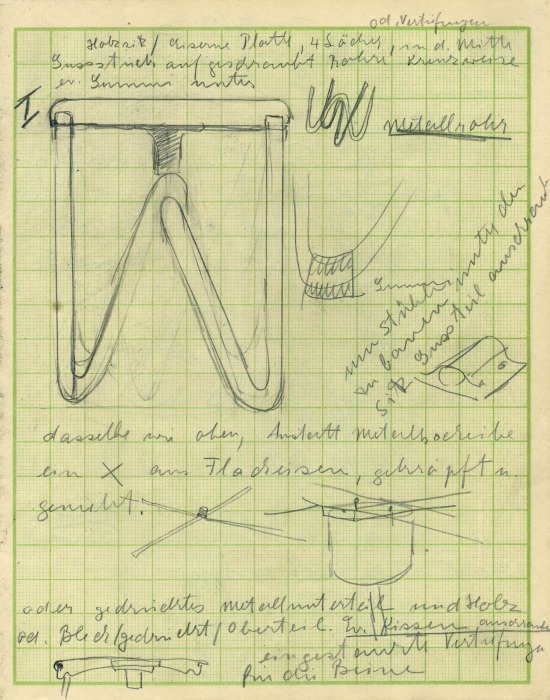 od. Vertiefungen
Holzsitz / eiserne Platte, 4 Löcher, in d. Mitte
Gussstück aufgeschraubt Rohre kreuzweise
ev. Gummi unter
I
Metallrohr
Gummi
um Stühle
zu bauen unter den
Sitz Gussteil anschrauben
dasselbe wie oben, Anstatt Metallscheibe
ein X aus Flacheisen, gekröpft u.
genietet.
oder gedrücktes Metallunterteil und Holz
od. Blech/gedrückt/Oberteil. Kissen
eingestanzte Vertiefungen
für die Beine